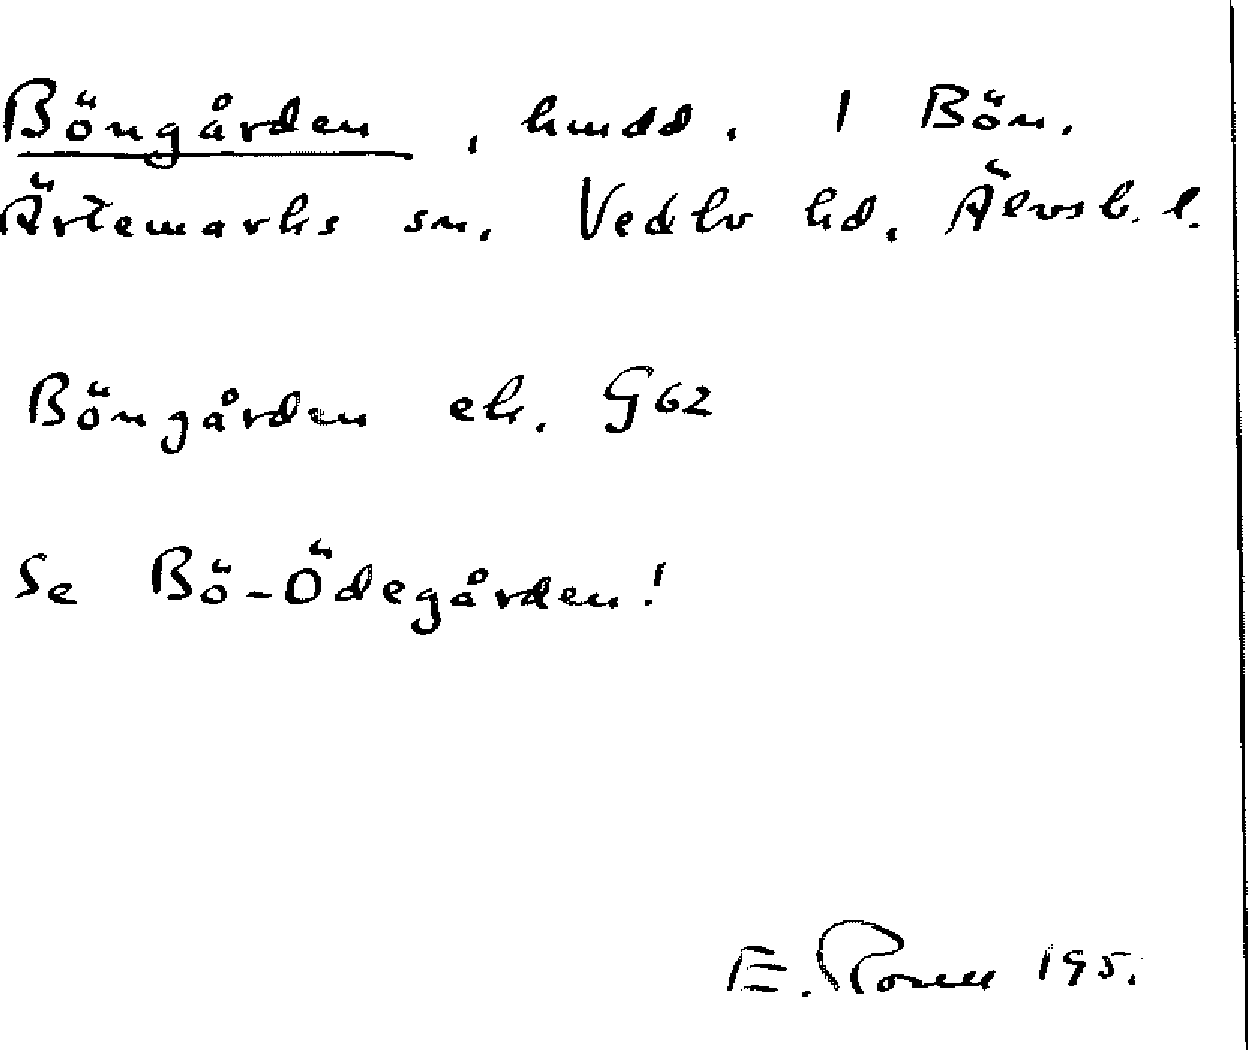 Böngården, hmdd. 1 Bön.
Ärtemarks sn. Vedbo hd. Älvsb. l.
Böngården ek. G62
Se Bö-Ödegården!
E. 195.